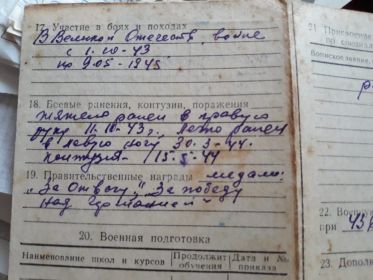 17. Участие в боях и походах
В Великой Отечеств. войне
с 1.10-43
по 9.05-1945
18. Боевые ранения, контузии, поражения
тяжело ранен в правую
руку 11.10-43г. Легко ранен
в левую ногу 30.3-44.
контузия - 15.5-44
19. Правительственные награды медали:
"За Отвагу", "За победу
над Германией"
20. Военная подготовка
Наименование школ и курсов
Продолжит.
обучения
Дата и №
приказа
21. Присвоение
по специал
Воинское звание,
22. Воин
при 43
23. Допол